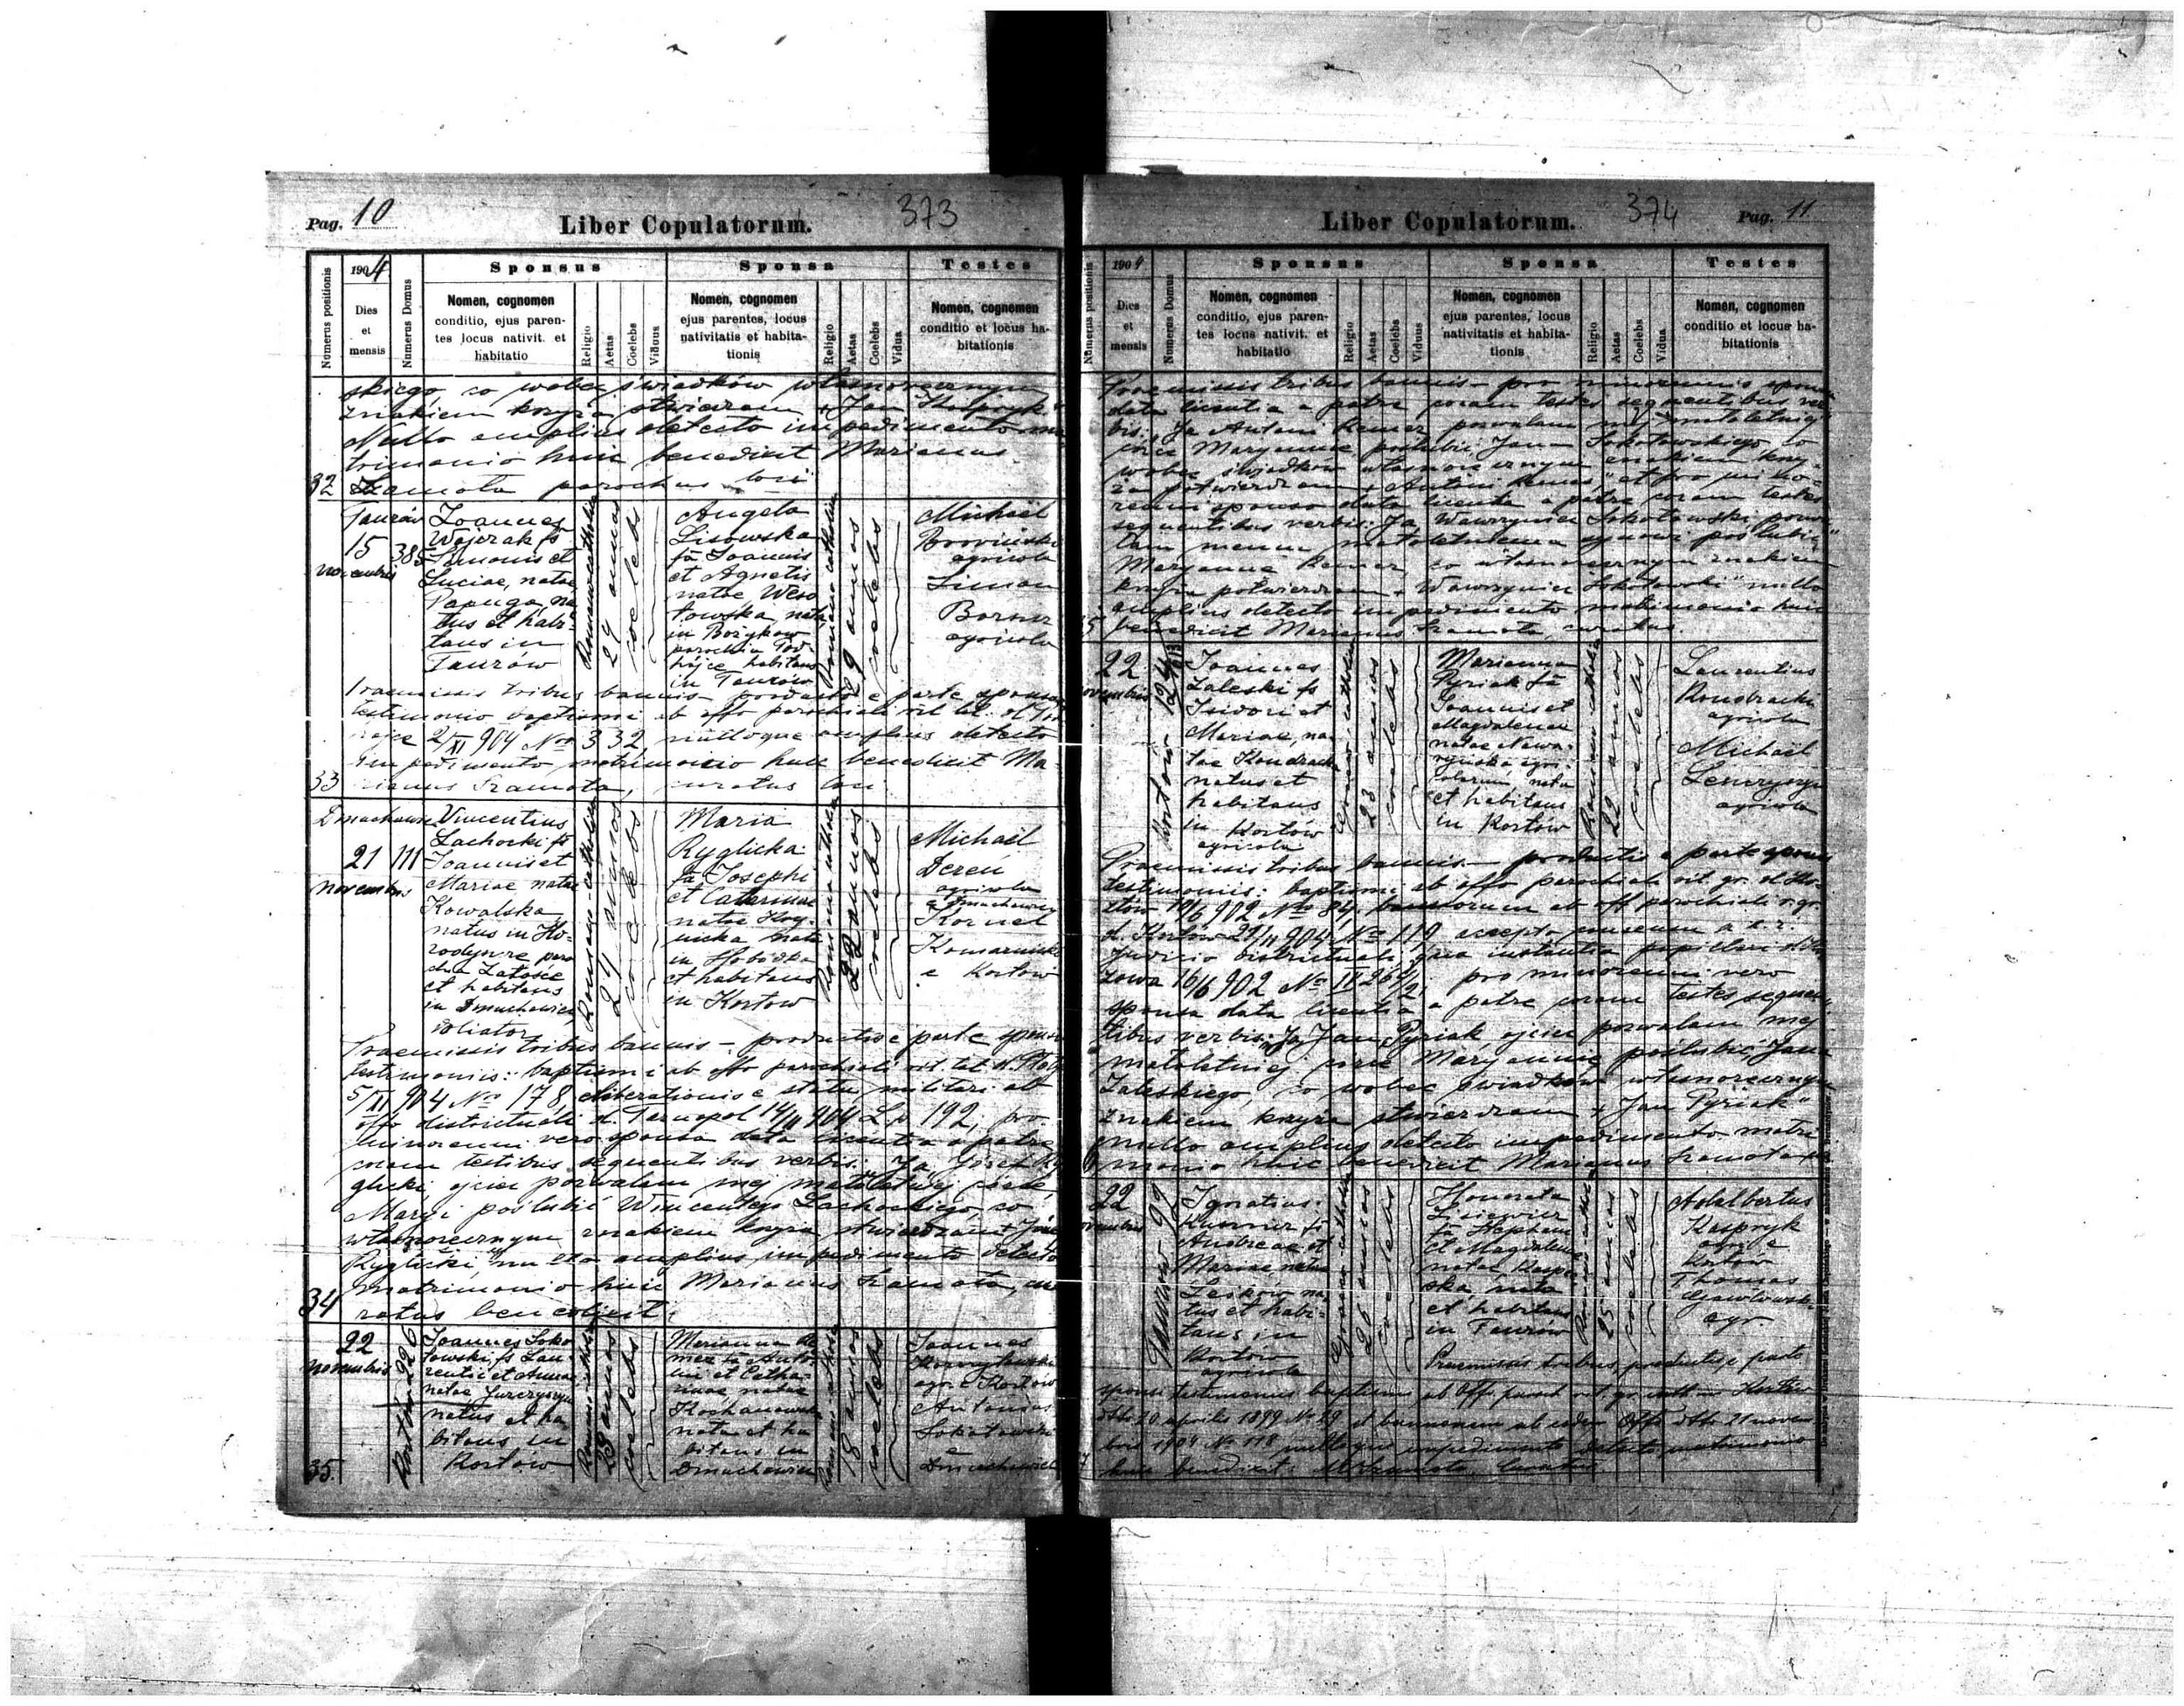 Pag. 10
Liber Copulatorum.
373
Numerus positionis
1904
Dies et mensis
Numerus Domus
Sponsus
Nomen, cognomen
conditio, ejus paren-
tes locus nativit. et
habitatio
Religio
Aetas
Coelebs
Viduus
Sponsa
Nomen, cognomen
ejus parentes, locus
nativitatis et habita-
tionis
Religio
Aetas
Coelebs
Vidua
Testes
Nomen, cognomen
conditio et locus ha-
bitationis
skiego, co wobec świadków własnoręcznym
znakiem krzyża stwierdzam + Jan
Nullo amplius detecto impedimento ma
trimonio huic benedicit Marianus
32 Szamota parochus loci
Taurów
15
novembris
385
Joannes
Wojczak fs
Simonis et
Luciae, natae
Papuga, na
tus et habi-
tans in
Taurów
29 annos
coelebs
Angela
Lisowska
fa Joannis
et Agnetis
natae Weso
łowska, nata
in Bożykow
parochia Pod-
hajce habitans
in Taurów
Romano catholica
29 annos
coelebs
Michaël
agricola
Simon
agricola
Praemissis tribus bannis – producto e parte sponsae
testimonio baptismi ab offo parochiali rit. lat. d.
2/XI 904 No 332, nulloque amplius detecto
impedimento matrimonio huic benedicit Ma-
33 rianus Szamota, curatus loci
21
novembris
111
Vincentius
Lachocki fs
Joannis et
Mariae natae
Kowalska
natus in Ho-
rodyszcze paro
chia Załośce
et habitans
in Dmuchawiec
24 annos
coelebs
Maria
Ryglicka
fa Josephi
et Catharinae
nata
in Hobodka
et habitans
in Kozłow
22 annos
coelebs
Michaël
Dereń
agricola
e Dmuchawiec
Kornel
e Kozłow
Praemissis tribus bannis – productis e parte sponsi
testimoniis: baptismi ab offo parochiali rit. lat. d.
5/XI 904 No 178, liberationis e statu militari ab
offo districtuali d. Tarnopol 14/11 904 L. p. 192, pro
minorenni vero sponsa data licentia a patre
coram testibus sequentibus verbis: "Ja, Józef Ry
glicki ojciec pozwalam mej małoletniej córce
Maryi poślubić Wincentego Lachockiego, co
własnoręcznym znakiem krzyża stwierdzam + Józef
Ryglicki" nullo amplius impedimento detecto
matrimonio huic Marianus Szamota, cu
34 ratus benedicit.
22
novembris
Kozłów 226
Joannes Soko
łowski fs Lau
rentii et Annae
natae Jurczyszyn
natus et ha
bitans in
Kozłow
23 annos
coelebs
Marianna Re
mer fa Anto
nii et Catha-
rinae, natae
Kochanowska
nata et ha
bitans in
Dmuchawiec
18 annos
coelebs
Joannes
agr. e Kozłow
Antonius
Sokołowski
e
Dmuchawiec
35.
Liber Copulatorum.
374
Pag. 11
Numerus positionis
1904
Dies et mensis
Numerus Domus
Sponsus
Nomen, cognomen
conditio, ejus paren-
tes locus nativit. et
habitatio
Religio
Aetas
Coelebs
Viduus
Sponsa
Nomen, cognomen
ejus parentes, locus
nativitatis et habita-
tionis
Religio
Aetas
Coelebs
Vidua
Testes
Nomen, cognomen
conditio et locus ha-
bitationis
Praemissis tribus bannis – pro minorennis sponsa
data licentia a patre coram testes sequentibus ver
bis: "Ja Antoni Remer pozwalam mej małoletniej
córce Maryannie poślubić Jana Sokołowskiego, co
wobec świadków własnoręcznym znakiem krzy-
ża potwierdzam + Antoni Remer" et pro mino-
renni sponso data licentia a patre coram testes
sequentibus verbis: Ja Wawrzyniec Sokołowski pozwa
lam memu małoletniemu synowi poślubić
Maryannę Remer, co własnoręcznym znakiem
krzyża potwierdzam + Wawrzyniec Sokołowski" nullo
amplius detecto impedimento matrimonio huic
benedicit Marianus Szamota, curatus.
22
novembris
Kozłów
Joannes
Zaleski fs
Isidori et
Mariae, na
tae Kondracka
natus et
habitans
in Kozłów
agricola
23 annos
coelebs
Marianna
Pyriak fa
Joannis et
Magdalenae
natae
nata
et habitans
in Kozłów
22 annos
coelebs
Laurentius
Kondracki
agricola
Michaël
agricola
Praemissis tribus bannis – productis e parte sponsi
testimoniis: baptismi ab offo parochiali rit. gr. d. Ko-
złów 19/6 902 No 84, bannorum ab off parochiali r. gr.
d. Kozłów 22/11 904 No 119, accepto consensu a c. r.
judicio districtuali qua instantia pupillari d. Ko-
złowa 16/6 902 No pro minorenni vero
sponsa data licentia a patre coram testes sequen-
tibus verbis: "Ja Jan Pyriak ojciec pozwalam mej
małoletniej córce Maryannie poślubić Jana
Zaleskiego, co wobec świadków własnoręcznym
znakiem krzyża stwierdzam + Jan Pyriak"
nullo amplius detecto impedimento matri
monio huic benedicit Marianus Szamota
22
novembris
Taurów 92
Ignatius
fs
Andreae et
Mariae, natae
na
tus et habi-
tans in
Kozłów
agricola
26 annos
coelebs
Honorata
Lisiewicz
fa Stephani
et Magdalenae
natae
nata
et habitans
in Taurów
25 annos
coelebs
Adalbertus
Kaspryk
agr. e
Kozłów
Thomas
agr.
Praemissis tribus productis e parte
sponsi testimoniis baptismi ab Off. paroch. rit. gr. cath. in Kozłów
ddto 20 aprilis 1899 No 29 et bannorum ab eodem Offo ddto 21 novem
bris 1904 No 118 nulloque impedimento detecto matrimonio
huic benedicit: M. Szamota, Curatus